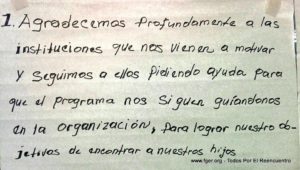 1. Agradecemos Profundamente a las
instituciones que nos vienen a motivar
y Seguimos a ellos Pidiendo ayuda para
que el programa nos siguen guiandonos
en la organización, para lograr nuestro ob-
jetivos de encontrar a nuestros hijos
www.fger.org - Todos Por El Reencuentro